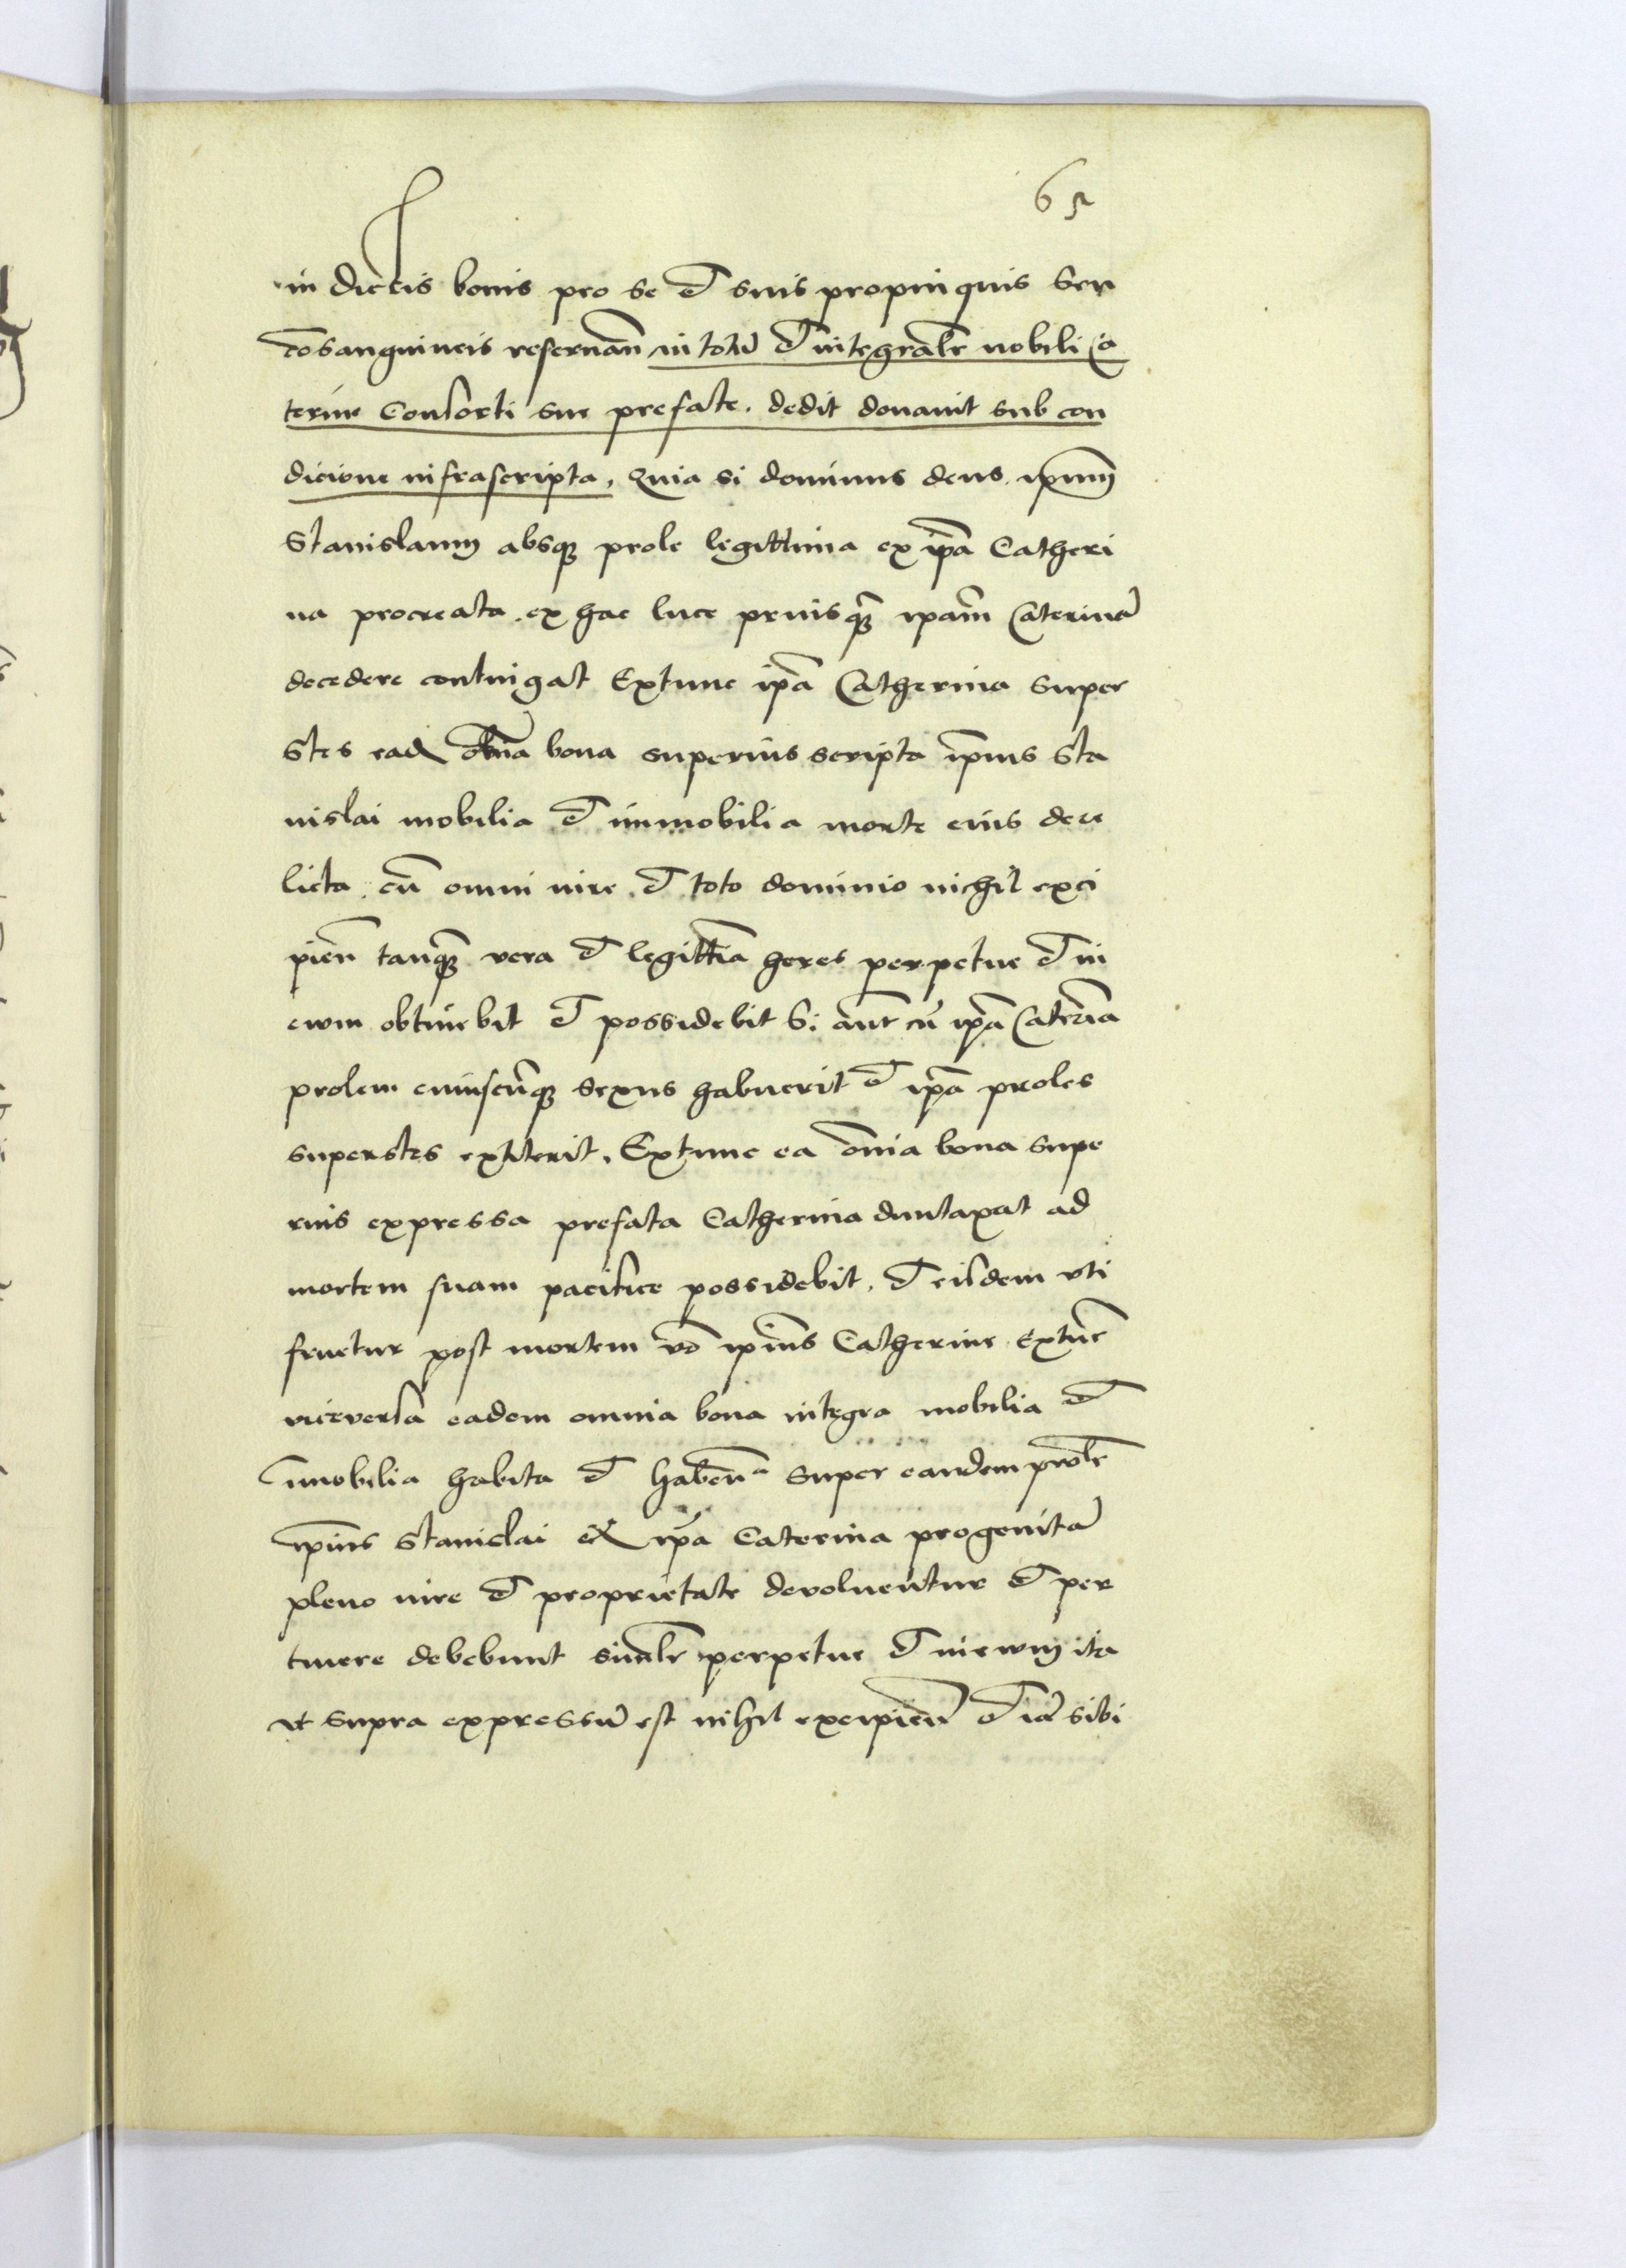 65
in dictis bonis pro se et suis propinquis seu
cōsanguineis reseruan̄ in totū et integralr̄ nobili Ca
terine Consorti sue prefate. dedit donauit sub con
dicione infrascripta. Quia si dominus deus ip̄um
Stanislaum absq̄ prole legittima ex ip̄a Catheri
na procreata. ex hac luce priusq̄ ip̄am Caterinā
decedere contingat Extunc ip̄a Catherina super
stes ead̄ om̄ia bona superius scripta ip̄ius Sta
nislai mobilia et immobilia morte eius dere
licta cū omni iure et toto dominio nichil exci
pien̄ tanq̄ vera et legittīa heres perpetue et in
ewm obtinebit et possidebit Si aut̄ cū ip̄a Caterīa
prolem cuiuscūq̄ sexus habuerit et ip̄a proles
superstes extiterit. Extunc ea om̄ia bona supe
rius expressa prefata Catherina duntaxat ad
mortem suam pacifice possidebit. et eisdem vti
fruetur post mortem vō ip̄ius Catherine Extūc
viceversa eadem omnia bona integra mobilia et
īmobilia habita et haben̄a super eandem prolē
ip̄ius Stanislai ex ip̄a Caterina progenitā
pleno iure et proprietate devoluentur et per
tinere debebunt simlr̄ perpetue et in ewm ita
vt supra expressū est nihil excipien̄ et iā sibi